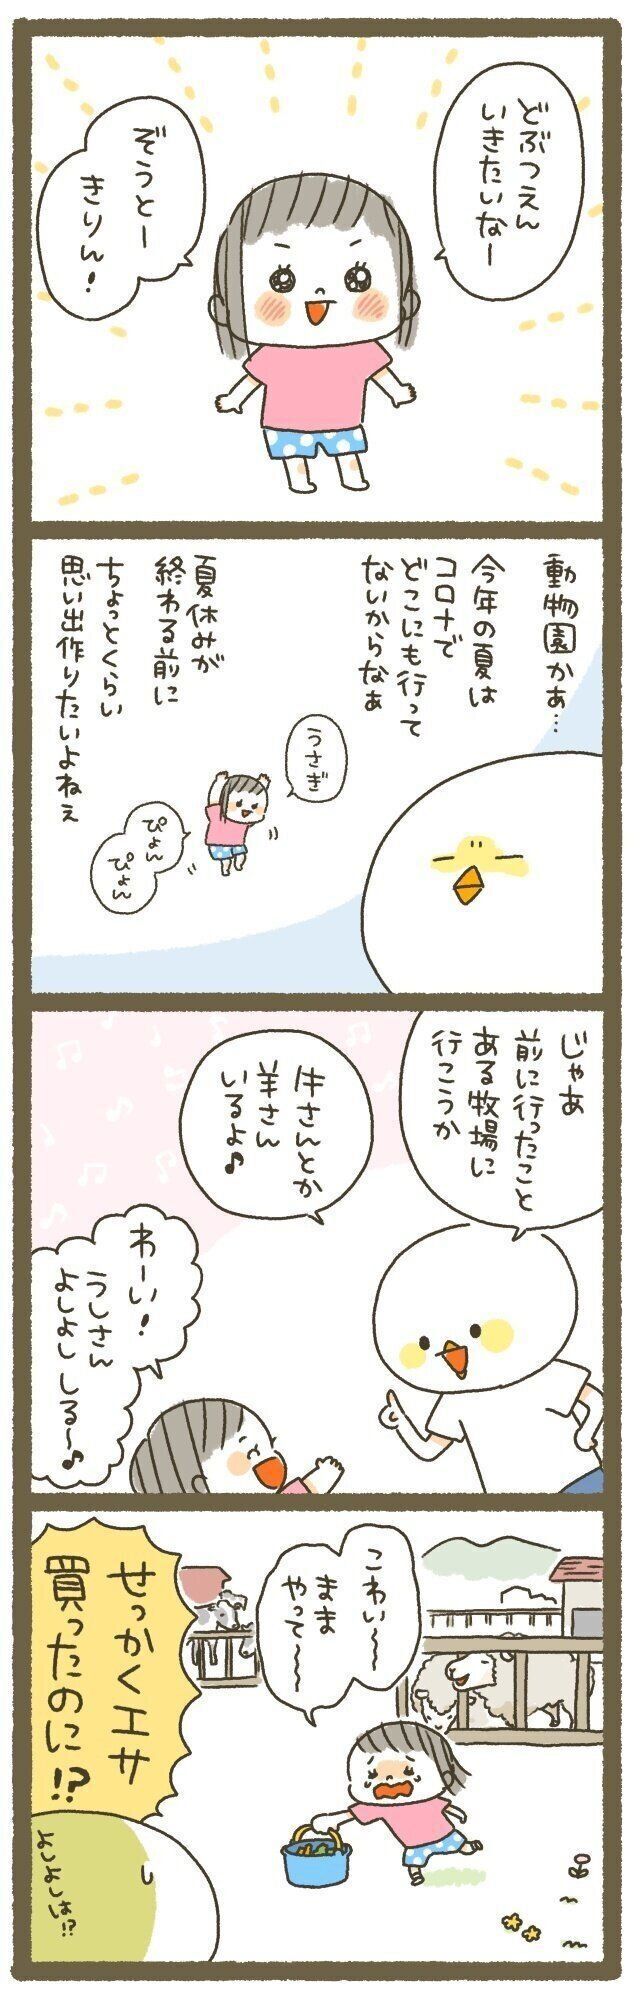 どぶつえん
いきたいなー
ぞうとー
きりん!
動物園かぁ…
今年の夏は
コロナで
どこにも行って
ないからなぁ
夏休みが
終わる前に
ちょっとくらい
思い出作りたいよねぇ
うさぎ
ぴょん
ぴょん
じゃあ
前に行ったこと
ある牧場に
行こうか
牛さんとか
羊さん
いるよ♪
わーい!
うしさん
よしよし しる〜♪
こわい〜
まま
やって〜
せっかくエサ
買ったのに!?
よしよしは!?